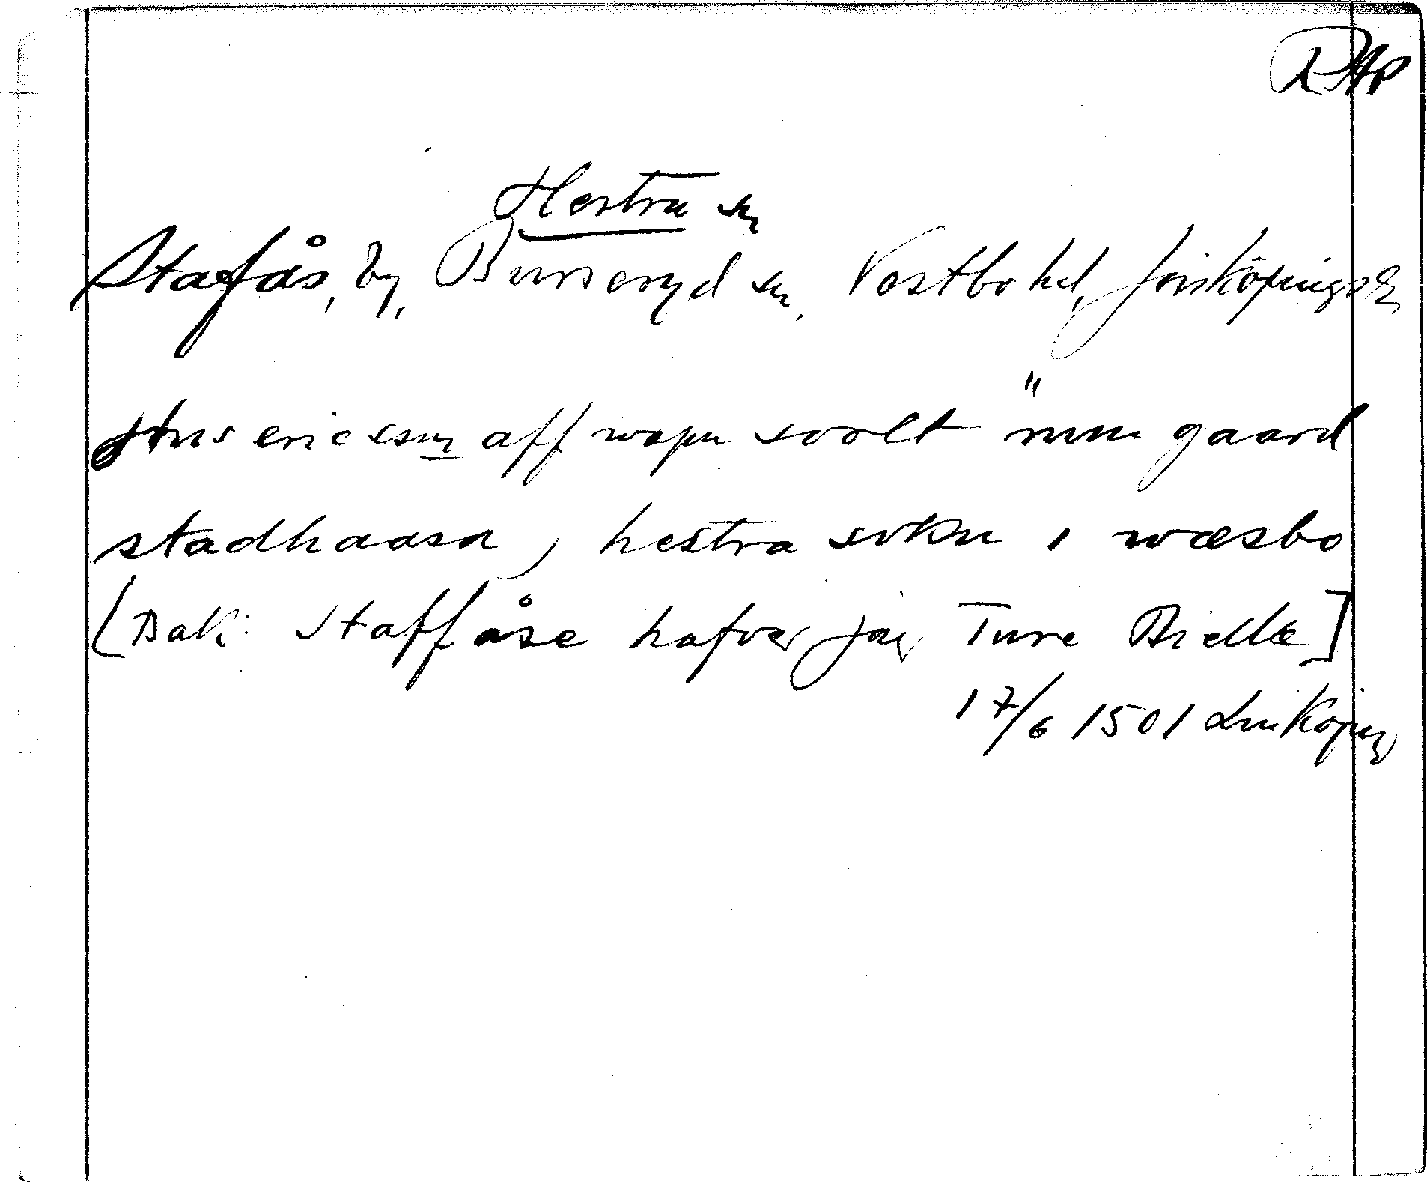 RAp
Hestra sn
Stafås, by, Burseryd sn, Västbo hd, Jönköpings l
Jöns ericsson aff wapn soolt "min gaard
stadhaasa, hestra sokn i wæsbo
[Bak: Staffåse hafver jag Ture Bielke]
17/6 1501 Linköping